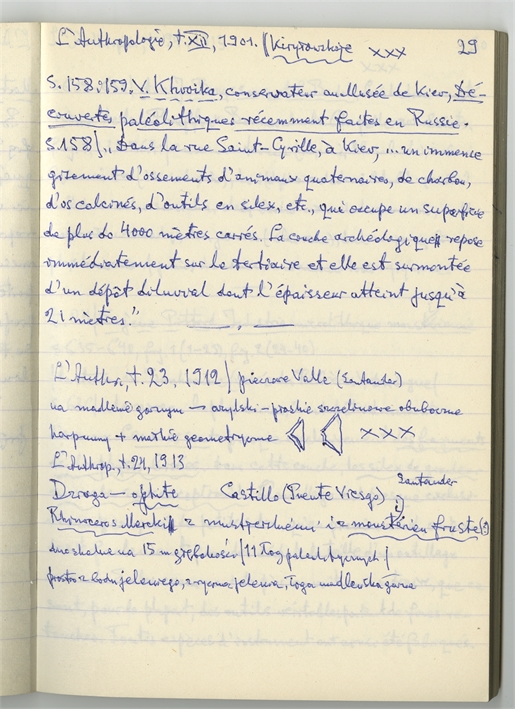 L'Anthropologie, t. XII, 1901. // Kiryłowskaje xxx 29
S. 158-159, V. Khvoika, conservateur au Musée de Kiev, Dé-
couvertes paléolithiques récemment faites en Russie.
S. 158/ „Dans la rue Saint-Cyrille, à Kiev, ... un immense
gisement d'ossements d'animaux quaternaires, de charbon,
d'os calcinés, d'outils en silex, etc., qui occupe un superficie
de plus de 4000 mètres carrés. La couche archéologique repose
immédiatement sur le tertiaire et elle est surmontée
d'un dépôt diluvial dont l'épaisseur atteint jusqu'à
21 mètres."
L'Anthr., t. 23, 1912/ Valle (Santander)
na madlenie górnym → azylski - płaskie obuboczne
harpuny + małkie geometryczne xxx
L'Anthrop., t. 24, 1913
Santander
Castillo (Puente Viesgo)
Rhinoceros Mercki z mustierskiemi i z moustérien fruste (?)
dno skalne na 15 m głębokości /11
prosto z jeleniego, jelenia,